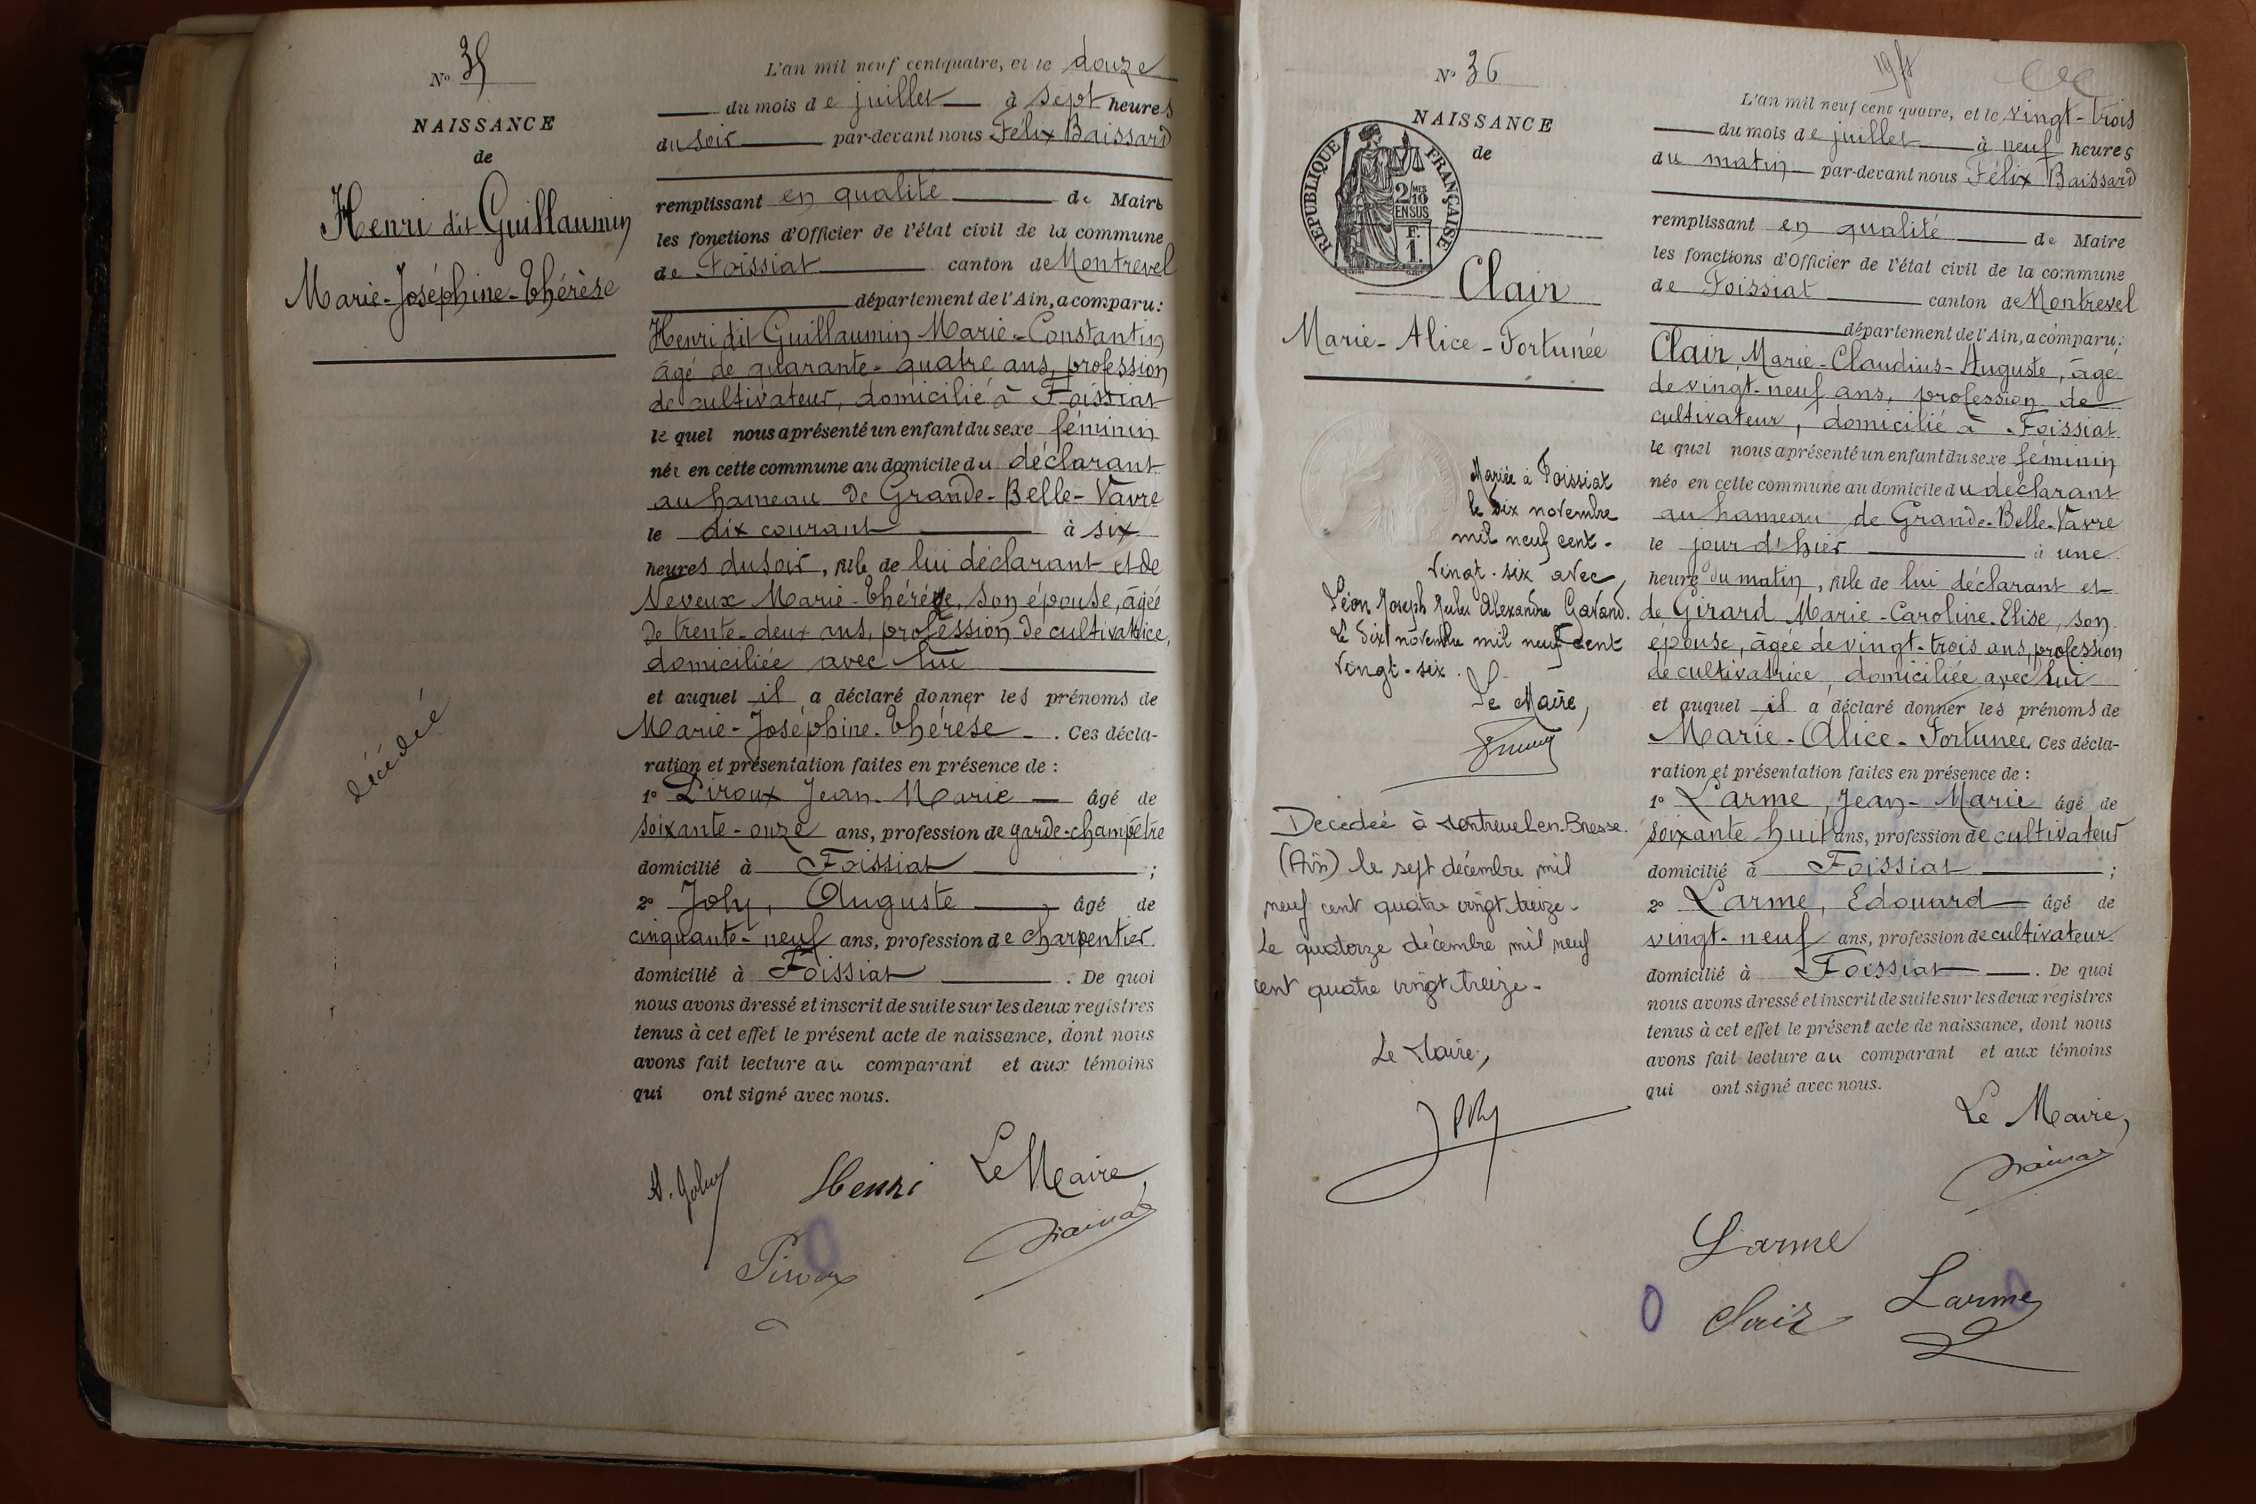 N° 35
NAISSANCE
de
Henri dit Guillaumin
Marie-Joséphine-Thérèse
décédée
L'an mil neuf cent quatre, et le douze
du mois de juillet à sept heures
du soir par-devant nous Félix Baissard
remplissant en qualité de Maire
les fonctions d'Officier de l'état civil de la commune
de Foissiat canton de Montrevel
département de l'Ain, a comparu:
Henri dit Guillaumin Marie-Constantin
âgé de quarante-quatre ans, profession
de cultivateur, domicilié à Foissiat
le quel nous a présenté un enfant du sexe féminin
née en cette commune au domicile du déclarant
au hameau de Grande-Belle-Vavre
le dix courant à six
heures du soir, fille de lui déclarant et de
Neveux Marie-Thérèse, son épouse, âgée
de trente-deux ans, profession de cultivatrice,
domiciliée avec lui
et auquel il a déclaré donner les prénoms de
Marie-Joséphine-Thérèse. Ces décla-
ration et présentation faites en présence de :
1° Piroux Jean-Marie âgé de
soixante-onze ans, profession de garde-champêtre
domicilié à Foissiat ;
2° Joly, Auguste, âgé de
cinquante-neuf ans, profession de charpentier
domicilié à Foissiat. De quoi
nous avons dressé et inscrit de suite sur les deux registres
tenus à cet effet le présent acte de naissance, dont nous
avons fait lecture au comparant et aux témoins
qui ont signé avec nous.
A. Joly Henri Le Maire,
Piroux
N° 36
NAISSANCE
de
REPUBLIQUE FRANÇAISE
2/10 MES
EN SUS
F.
1.
Clair
Marie-Alice-Fortunée
Mariée à Foissiat
le dix novembre
mil neuf cent-
vingt-six avec
Léon Joseph Jules Alexandre Gavand.
Le dix novembre mil neuf cent
vingt-six.
Le Maire,
Décédée à Montrevel en-Bresse
(Ain) le sept décembre mil
neuf cent quatre vingt treize-
Le quatorze décembre mil neuf
cent quatre vingt treize-
Le Maire,
L'an mil neuf cent quatre, et le vingt-trois
du mois de juillet à neuf heures
du matin par-devant nous Félix Baissard
remplissant en qualité de Maire
les fonctions d'Officier de l'état civil de la commune
de Foissiat canton de Montrevel
département de l'Ain, a comparu:
Clair, Marie-Claudius-Auguste, âgé
de vingt-neuf ans, profession de
cultivateur, domicilié à Foissiat
le quel nous a présenté un enfant du sexe féminin
née en cette commune au domicile du déclarant
au hameau de Grande-Belle-Vavre
le jour d'hier à une
heure du matin, fille de lui déclarant et
de Girard Marie-Caroline-Elise, son
épouse, âgée de vingt-trois ans, profession
de cultivatrice, domiciliée avec lui
et auquel il a déclaré donner les prénoms de
Marie-Alice-Fortunée. Ces décla-
ration et présentation faites en présence de :
1° Larme, Jean-Marie âgé de
soixante huit ans, profession de cultivateur
domicilié à Foissiat ;
2° Larme, Edouard âgé de
vingt-neuf ans, profession de cultivateur
domicilié à Foissiat. De quoi
nous avons dressé et inscrit de suite sur les deux registres
tenus à cet effet le présent acte de naissance, dont nous
avons fait lecture au comparant et aux témoins
qui ont signé avec nous.
Le Maire,
Larme
Clair Larme